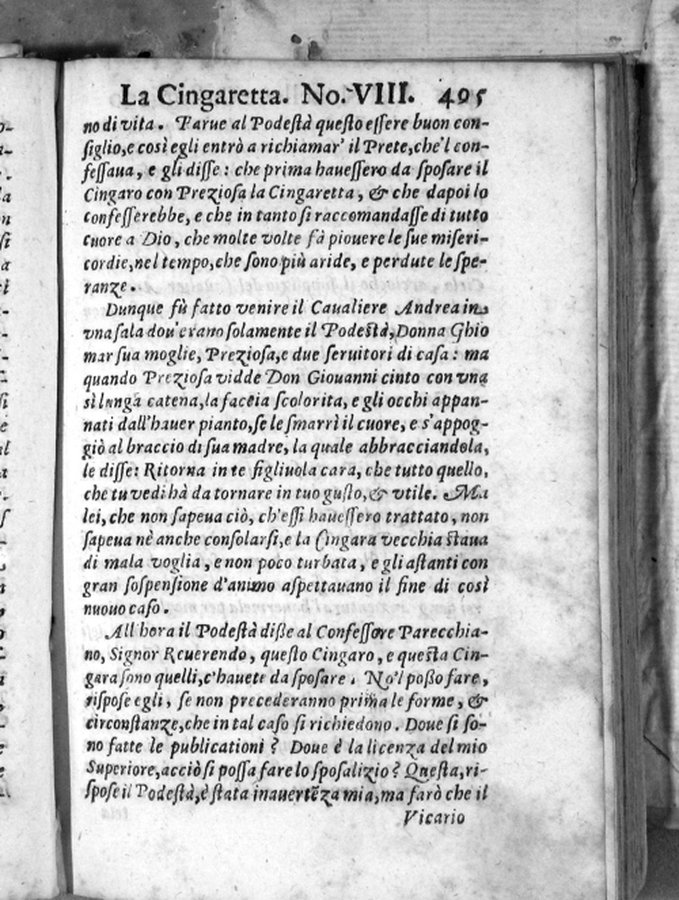 La Cingaretta. No. VIII. 495
no di vita. Parue al Podeſtà queſto eſſere buon con-
ſiglio, e così egli entrò a richiamar' il Prete, che'l con-
feſſaua, e gli diſſe: che prima haueſſero da ſpoſare il
Cingaro con Prezioſa la Cingaretta, & che dapoi lo
confeſſerebbe, e che in tanto ſi raccomandaſſe di tutto
cuore a Dio, che molte volte fà piouere le ſue miſeri-
cordie, nel tempo, che ſono più aride, e perdute le ſpe-
ranze.
Dunque fù fatto venire il Caualiere Andrea in
vna ſala dou'erano ſolamente il Podeſtà, Donna Ghio
mar ſua moglie, Prezioſa, e due ſeruitori di caſa: ma
quando Prezioſa vidde Don Giouanni cinto con vna
sì lunga catena, la faccia ſcolorita, e gli occhi appan-
nati dall'hauer pianto, ſe le ſmarrì il cuore, e s'appog-
giò al braccio di ſua madre, la quale abbracciandola,
le diſſe: Ritorna in te figliuola cara, che tutto quello,
che tu vedi hà da tornare in tuo guſto, & vtile. Ma
lei, che non ſapeua ciò, ch'eſſi haueſſero trattato, non
ſapeua nè anche conſolarſi, e la Cingara vecchia ſtaua
di mala voglia, e non poco turbata, e gli aſtanti con
gran ſoſpenſione d'animo aſpettauano il fine di così
nuouo caſo.
All'hora il Podeſtà diße al Confeſſore Parecchia-
no, Signor Reuerendo, queſto Cingaro, e queſta Cin-
gara ſono quelli, c'hauete da ſpoſare. No'l poßo fare,
riſpoſe egli, ſe non precederanno prima le forme, &
circonſtanze, che in tal caſo ſi richiedono. Doue ſi ſo-
no fatte le publicationi? Doue è la licenza del mio
Superiore, acciò ſi poſſa fare lo ſpoſalizio? Queſta, ri-
ſpoſe il Podeſtà, è ſtata inauertẽza mia, ma farò che il
Vicario